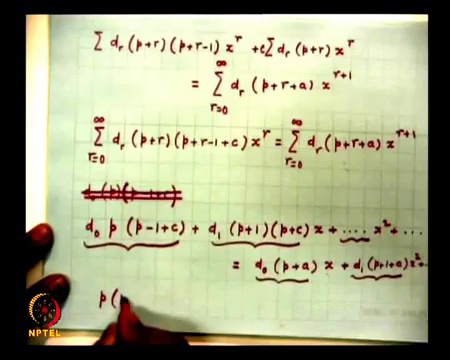 Σ d_r (p+r) (p+r-1) x^r + c Σ d_r (p+r) x^r
= Σ_{r=0}^{∞} d_r (p+r+a) x^{r+1}
Σ_{r=0}^{∞} d_r (p+r) (p+r-1+c) x^r = Σ_{r=0}^{∞} d_r (p+r+a) x^{r+1}
d_0 p (p-1+c) + d_1 (p+1) (p+c) x + .... x^2 + ...
= d_0 (p+a) x + d_1 (p+1+a) x^2 ..
p (
NPTEL